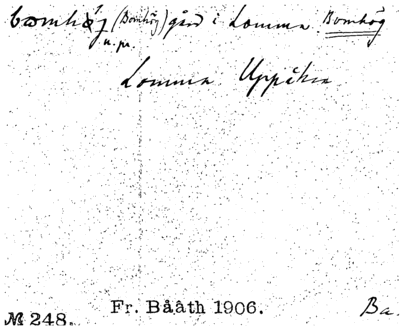 bomhöj (Bomhög) gård i Lomma. Bomhög
u. pr.
Lomma. Uppåkra
Fr. Bååth 1906. Ba.
№ 248.